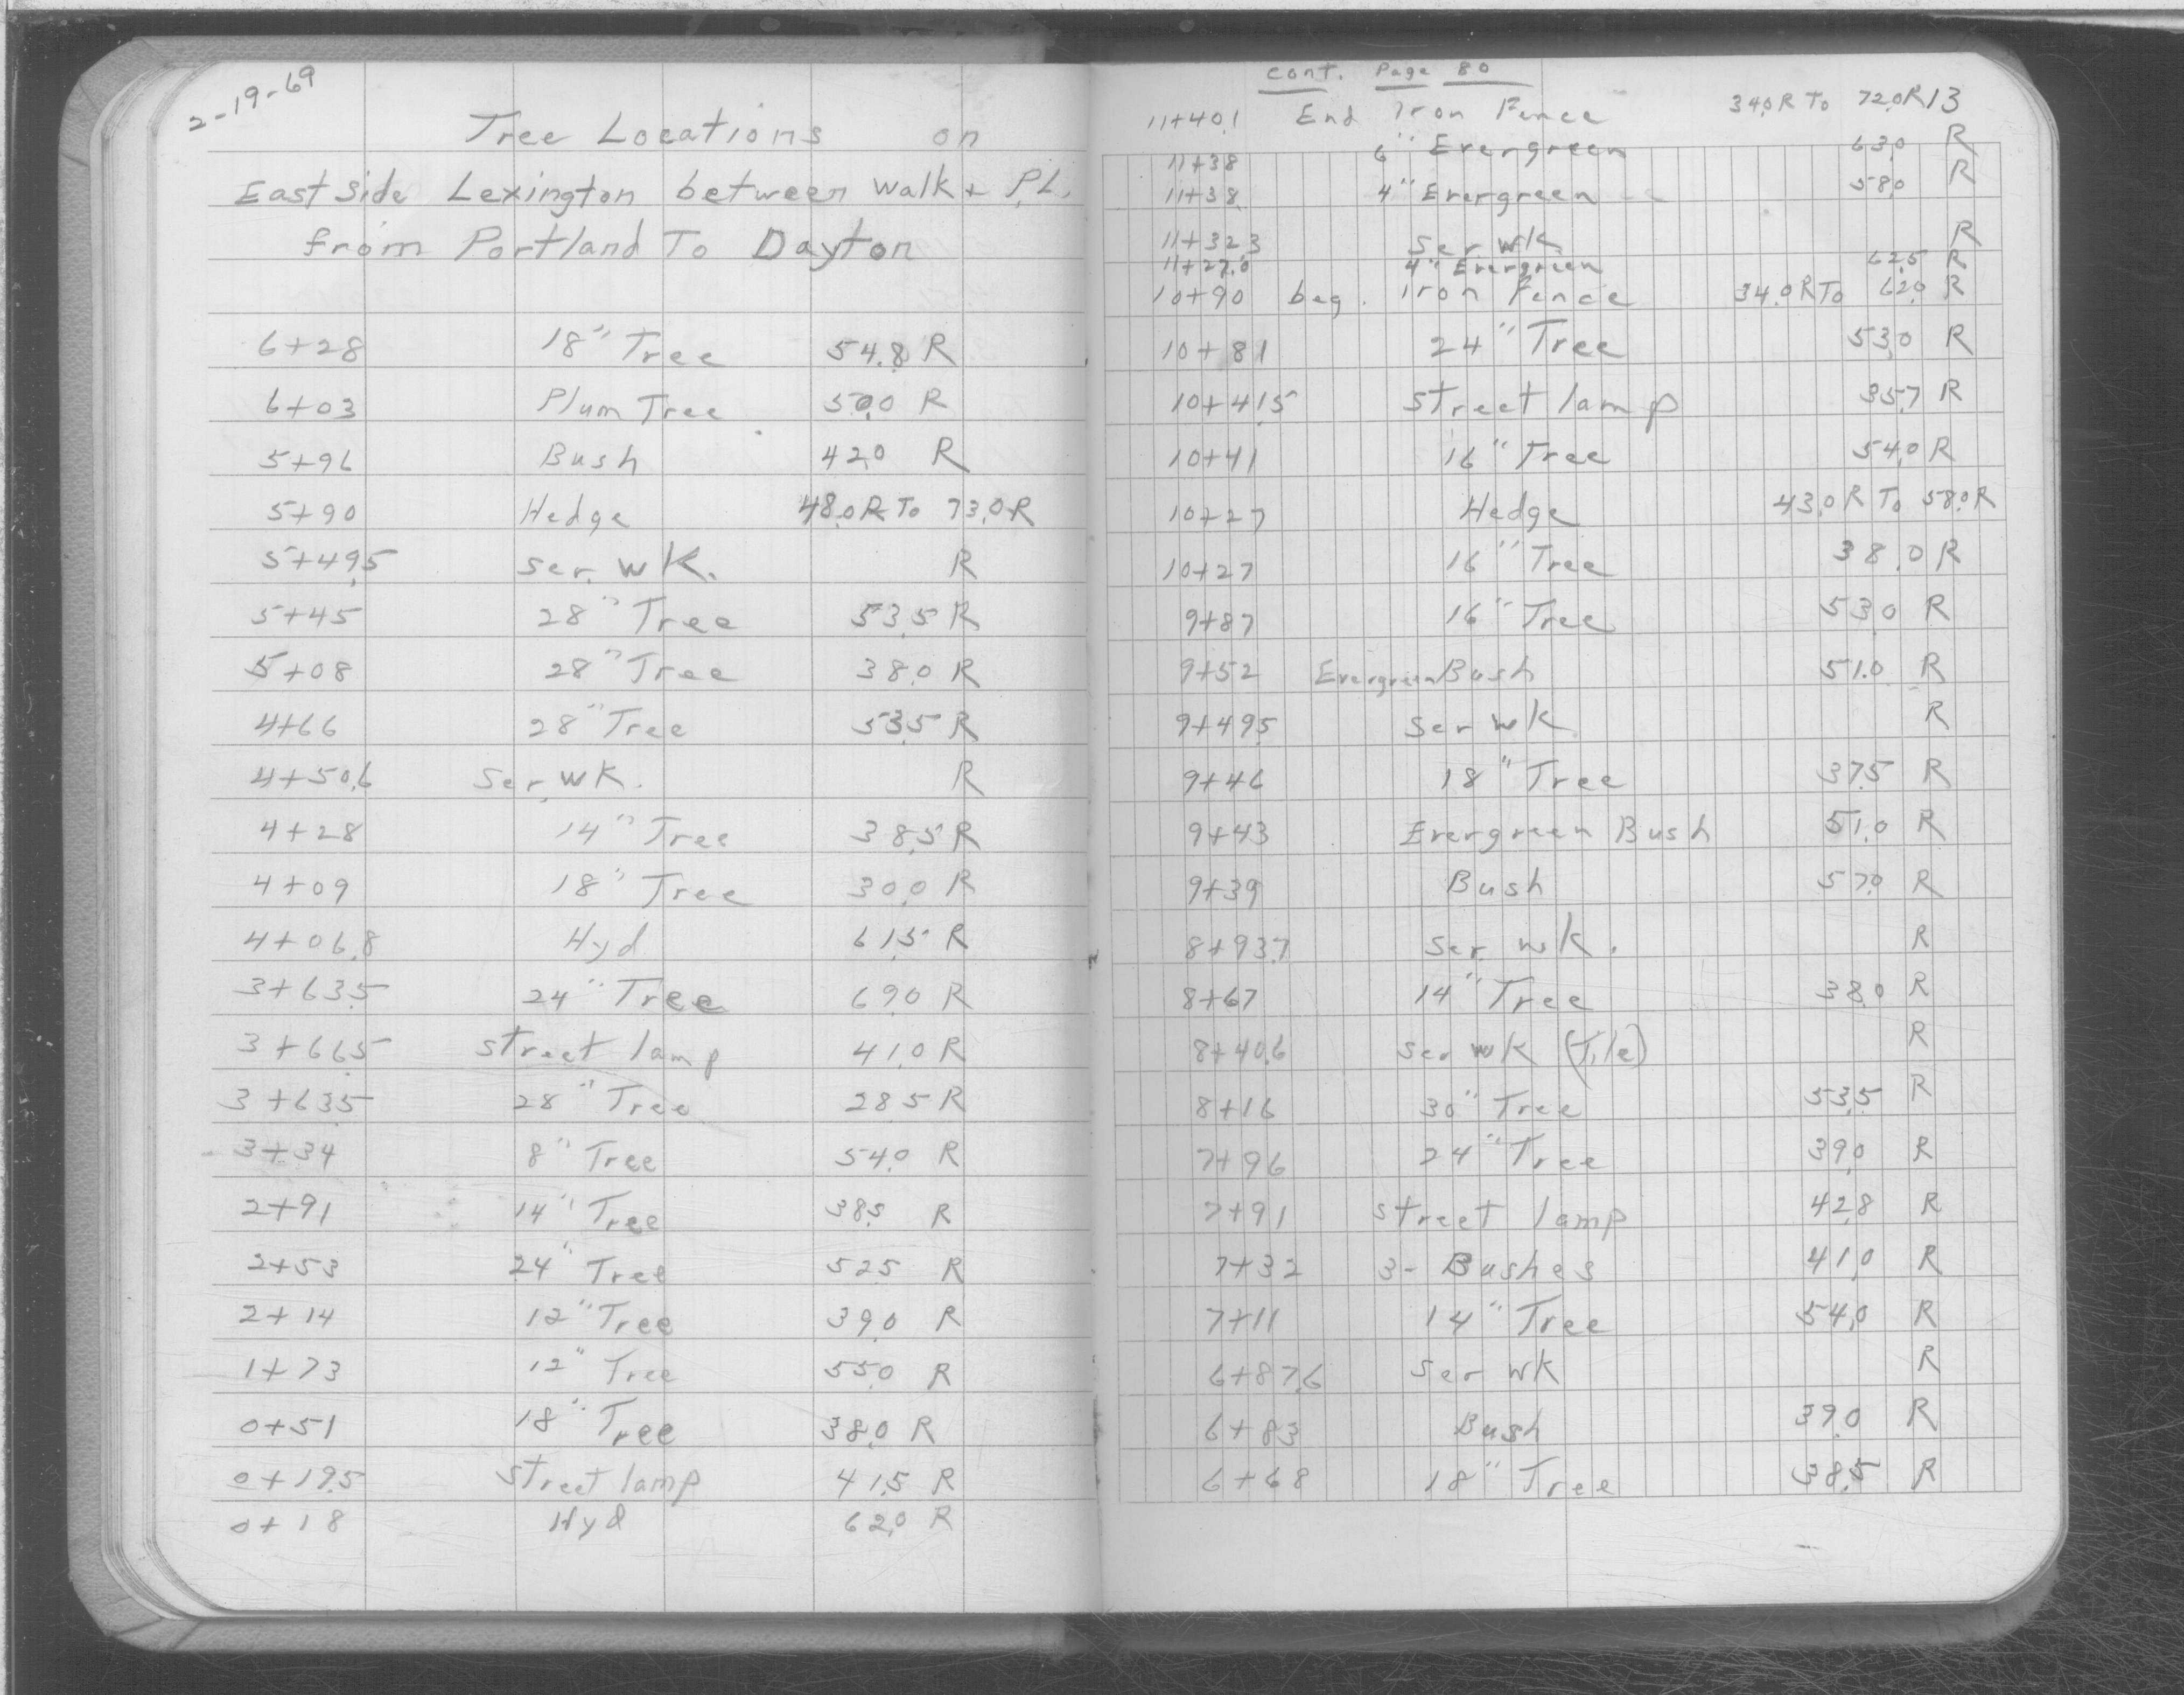 2-19-69
Tree Locations on
East Side Lexington between walk + P.L.
from Portland To Dayton
6+28 18" Tree 54.8 R
6+03 Plum Tree 50.0 R
5+96 Bush 42.0 R
5+90 Hedge 48.0R To 73.0R
5+49.5 Ser. WK. R
5+45 28" Tree 53.5 R
5+08 28" Tree 38.0 R
4+66 28" Tree 53.5 R
4+50.6 Ser. WK. R
4+28 14" Tree 38.5 R
4+09 18" Tree 30.0 R
4+06.8 Hyd 61.5 R
3+63.5 24" Tree 69.0 R
3+66.5 street lamp 41.0 R
3+63.5 28" Tree 28.5 R
3+34 8" Tree 54.0 R
2+91 14" Tree 38.5 R
2+53 24" Tree 52.5 R
2+14 12" Tree 39.0 R
1+73 12" Tree 55.0 R
0+51 18" Tree 38.0 R
0+19.5 street lamp 41.5 R
0+18 Hyd 62.0 R
cont. Page 80
13
11+40.1 End Iron Fence 34.0R To 72.0R
11+38 6" Evergreen 63.0 R
11+38 4" Evergreen 58.0 R
11+32.3 Ser. WK R
11+27.0 4" Evergreen 62.5 R
10+90 beg. Iron Fence 34.0R To 62.0 R
10+81 24" Tree 53.0 R
10+41.5 street lamp 35.7 R
10+41 16" Tree 54.0 R
10+27 Hedge 43.0R To 58.0R
10+27 16" Tree 38.0 R
9+87 16" Tree 53.0 R
9+52 Evergreen Bush 51.0 R
9+49.5 Ser WK R
9+46 18" Tree 37.5 R
9+43 Evergreen Bush 51.0 R
9+39 Bush 57.0 R
8+93.7 Ser. WK. R
8+67 14" Tree 38.0 R
8+40.6 Ser WK (Tile) R
8+16 30" Tree 53.5 R
7+96 24" Tree 39.0 R
7+91 street lamp 42.8 R
7+32 3- Bushes 41.0 R
7+11 14" Tree 54.0 R
6+87.6 Ser WK R
6+83 Bush 39.0 R
6+68 18" Tree 38.5 R